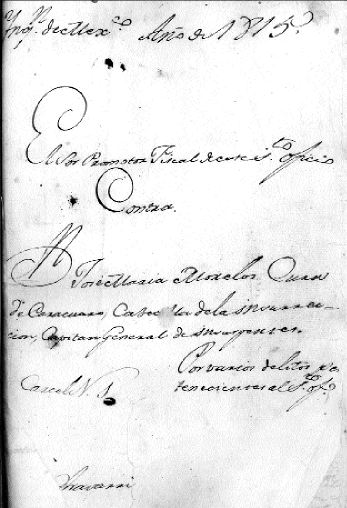 Ynqⁿ. de Mexᶜᵒ. Año de 1815.
El Sor Promotor Fiscal de este sᵗᵒ. oficio
Contra.
A Jose Maria Morelos Cura
de Caracuaro, Cabecilla de la Insurrec-
cion, Capitan General de Insurgentes
Por varios delitos pe
tenecientes al Sᵗᵒ. ofᵒ.
Carcel N. 1